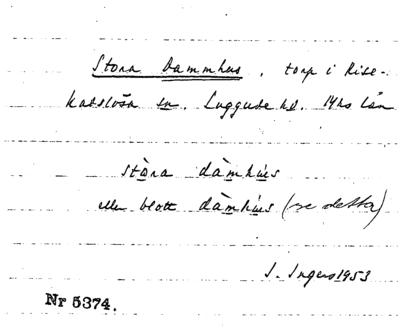 Stora Dammhus, torp i Rise-
katslösa sn. Luggude hd. Mhs län
stòra dàmhús
eller blott dàmhús (se detta)
I. Ingers 1953
Nr 5374.